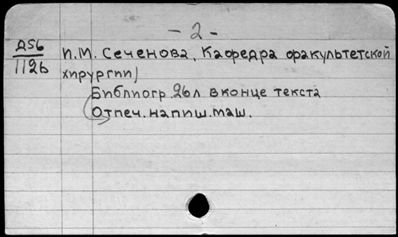 - 2 -
Д56 И.М. Сеченова, Кафедра факультетской
112б хирургии)
Библиогр. 26л в конце текста
Отпеч. на пиш. маш.